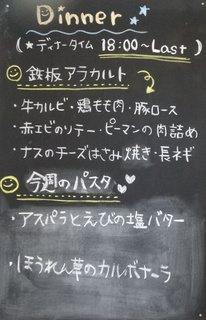 Dinner
(★ディナータイム 18:00〜Last)
鉄板アラカルト
・牛カルビ・鶏もも肉・豚ロース
・赤エビのソテー・ピーマンの肉詰め
・ナスのチーズはさみ焼き・長ネギ
今週のパスタ
・アスパラとえびの塩バター
・ほうれん草のカルボナーラ